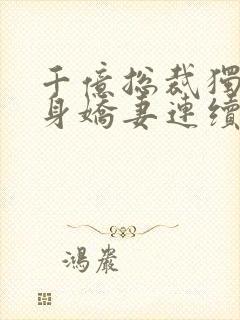 千億總裁獨
身嬌妻連續
鴻嚴